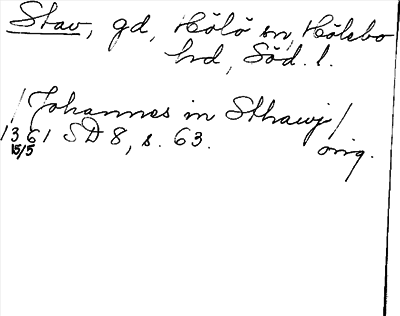 Stav, gd, Hölö sn, Hölebo
hd, Söd. l.
/Johannes in Sthawj/
1361 SD 8, s. 63. orig.
15/5